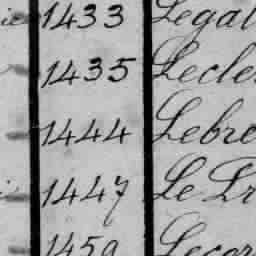 1433 Legal
1435 Lecle
1444 Lebre
1447 Le Tr
1459 Lecor